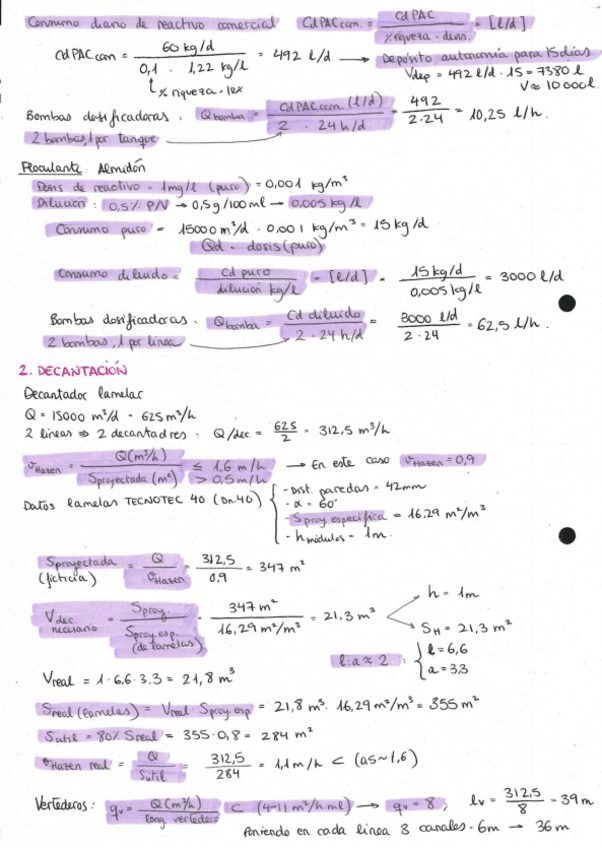 Consumo diario de reactivo comercial Cd PAC com. = Cd PAC / % riqueza · dens. = [l/d]
Cd PAC com = 60 kg/d / 0,1 · 1,22 kg/l = 492 l/d → Depósito autonomía para 15 días
↳ % riqueza = 10% Vdep = 492 l/d · 15 = 7380 l
V ≈ 10000 l.
Bombas dosificadoras : Qbomba = Cd PAC com. (l/d) / 2 · 24 h/d = 492 / 2·24 = 10,25 l/h.
2 bombas, 1 por tanque
Floculante: Almidón
Dosis de reactivo = 1mg/l (puro) = 0,001 kg/m³
Dilución : 0,5% P/V → 0,5 g/100 ml → 0,005 kg/l
Consumo puro = 15000 m³/d · 0,001 kg/m³ = 15 kg/d
Qd · dosis (puro)
Consumo diluido = Cd puro / dilución kg/l = [l/d] = 15 kg/d / 0,005 kg/l = 3000 l/d
Bombas dosificadoras : Qbomba = Cd diluido / 2 · 24 h/d = 3000 l/d / 2 · 24 = 62,5 l/h.
2 bombas, 1 por línea
2. DECANTACIÓN
Decantador lamelar
Q = 15000 m³/d = 625 m³/h
2 líneas ⇒ 2 decantadres : Q/dec = 625 / 2 = 312,5 m³/h
vHazen = Q (m³/h) / Sproyectada (m²) ≤ 1,6 m/h > 0,5 m/h → En este caso vHazen = 0,9
Datos lamelas TECNOTEC 40 (DN.40) { - Dist. paredas = 42mm
- α = 60°
- Sproy específica = 16,29 m²/m³
- hmódulos = 1m.
Sproyectada (ficticia) = Q / vHazen = 312,5 / 0,9 = 347 m²
Vdec. necesario = Sproy. / Sproy. esp. (de lamelas) = 347 m² / 16,29 m²/m³ = 21,3 m³ h = 1m
SH = 21,3 m²
l:a ≈ 2 : { l = 6,6
a = 3,3
Vreal = 1 · 6,6 · 3,3 = 21,8 m³
Sreal (lamelas) = Vreal · Sproy. esp = 21,8 m³ · 16,29 m²/m³ = 355 m²
Sutil = 80% Sreal = 355 · 0,8 = 284 m²
vHazen real = Q / Sutil = 312,5 / 284 = 1,1 m/h ⊂ (0,5~1,6)
Vertederos : qv = Q (m³/h) / long. vertedero ⊂ (4~11 m³/h·ml) → qv = 8 ; lv = 312,5 / 8 = 39 m
Poniendo en cada línea 3 canales · 6m → 36 m